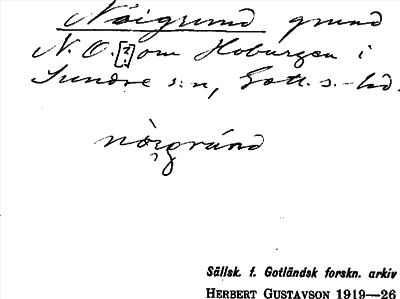 Nöigrund grund
N.O. [?] om Hoburgen i
Sundre s:n, Gotl. s.-hd.
nòigrúnd
Sällsk. f. Gotländsk forskn. arkiv
HERBERT GUSTAVSON 1919—26